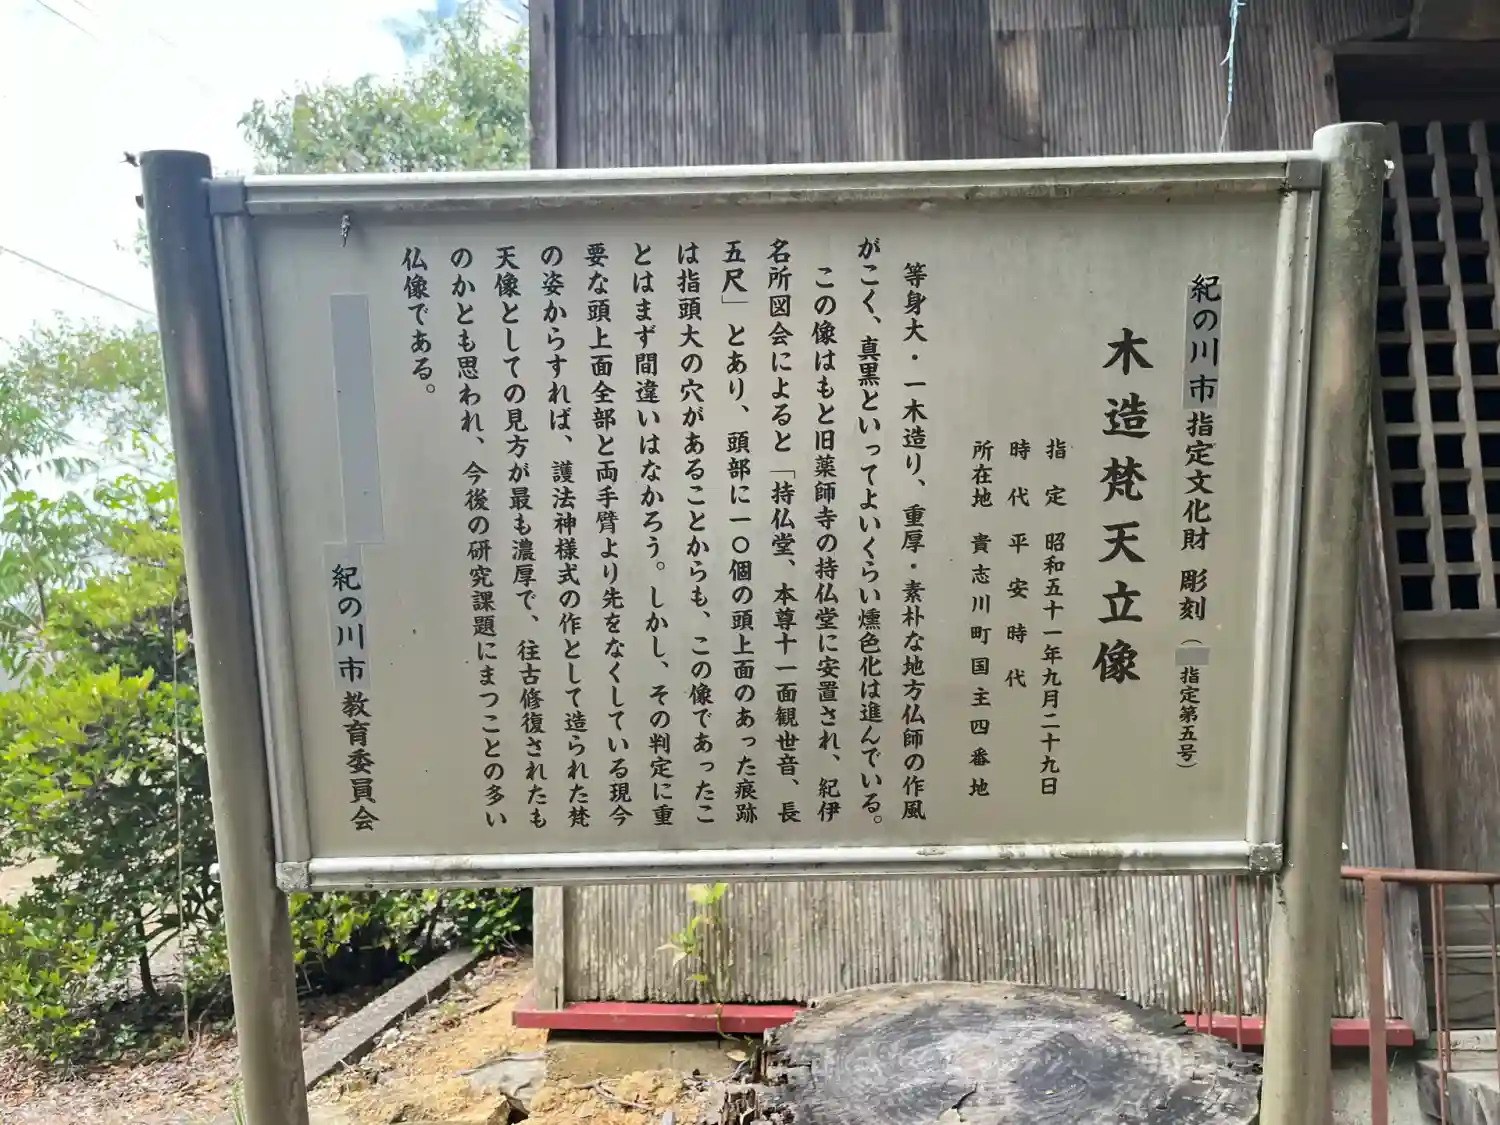 紀の川市指定文化財 彫刻（ 指定第五号）
木造梵天立像
指定 昭和五十一年九月二十九日
時代 平安時代
所在地 貴志川町国主四番地
等身大・一木造り、重厚・素朴な地方仏師の作風
がこく、真黒といってよいくらい燻色化は進んでいる。
この像はもと旧薬師寺の持仏堂に安置され、紀伊
名所図会によると「持仏堂、本尊十一面観世音、長
五尺」とあり、頭部に一〇個の頭上面のあった痕跡
は指頭大の穴があることからも、この像であったこ
とはまず間違いはなかろう。しかし、その判定に重
要な頭上面全部と両手臂より先をなくしている現今
の姿からすれば、護法神様式の作として造られた梵
天像としての見方が最も濃厚で、往古修復されたも
のかとも思われ、今後の研究課題にまつことの多い
仏像である。
紀の川市教育委員会